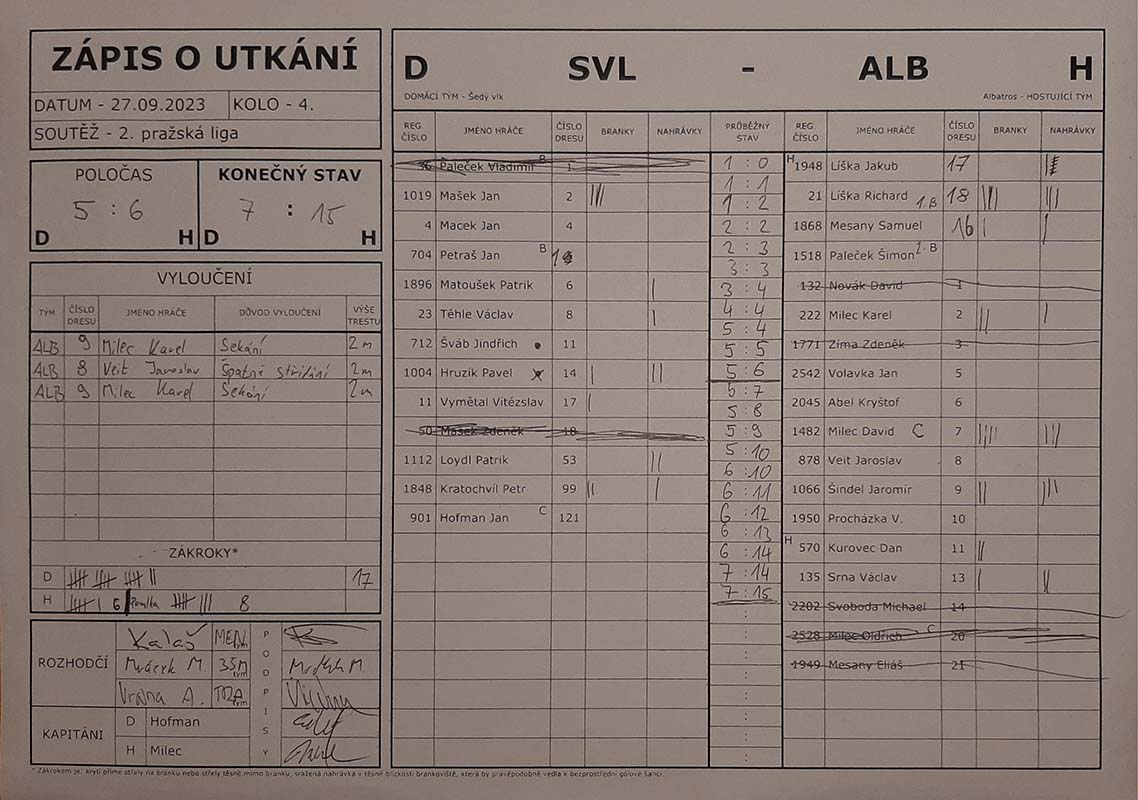 ZÁPIS O UTKÁNÍ
DATUM - 27.09.2023 KOLO - 4.
SOUTĚŽ - 2. pražská liga
POLOČAS KONEČNÝ STAV
5 : 6 7 : 15
D H D H
VYLOUČENÍ
TÝM ČÍSLO DRESU JMÉNO HRÁČE DŮVOD VYLOUČENÍ VÝŠE TRESTU
ALB 9 Milec Karel Sekání 2m
ALB 8 Veit Jaroslav Špatné střílání 2m
ALB 9 Milec Karel Sekání 2m
ZÁKROKY*
D 17
H 6 8
ROZHODČÍ
Kalaš
Mráček M. 3ŠM tým
Vrajna A.
PODPISY
KAPITÁNI
D Hofman
H Milec
D SVL - ALB H
DOMÁCÍ TÝM - Šedý vlk Albatros - HOSTUJÍCÍ TÝM
REG. ČÍSLO JMÉNO HRÁČE ČÍSLO DRESU BRANKY NAHRÁVKY PRŮBĚŽNÝ STAV REG. ČÍSLO JMÉNO HRÁČE ČÍSLO DRESU BRANKY NAHRÁVKY
36 Paleček Vladimír B 1
1019 Mašek Jan 2 |||
4 Macek Jan 4
704 Petraš Jan B
1896 Matoušek Patrik 6 |
23 Těhle Václav 8 |
712 Šváb Jindřich 11
1004 Hruzík Pavel 14 | ||
11 Vymětal Vítězslav 17 |
50 Mašek Zdeněk 18
1112 Loydl Patrik 53 ||
1848 Kratochvíl Petr 99 || |
901 Hofman Jan C 121
1 : 0
1 : 1
1 : 2
2 : 2
2 : 3
3 : 3
3 : 4
4 : 4
5 : 4
5 : 5
5 : 6
5 : 7
5 : 8
5 : 9
5 : 10
6 : 10
6 : 11
6 : 12
6 : 13
6 : 14
7 : 14
7 : 15
H 1948 Líška Jakub 17
21 Líška Richard 1.B 18 ||| ||
1868 Mesany Samuel 16 | |
1518 Paleček Šimon 2. B
132 Novák David 1
222 Milec Karel 2 || |
1771 Zíma Zdeněk 3
2542 Volavka Jan 5
2045 Abel Kryštof 6
1482 Milec David C 7 |||| |||
878 Veit Jaroslav 8
1066 Šindel Jaromír 9 || |||
1950 Procházka V. 10
H 570 Kurovec Dan 11 ||
135 Srna Václav 13 | ||
2202 Svoboda Michael 14
2528 Milec Oldřich C 20
1949 Mesany Eliáš 21
* Zákrokem je: krytí přímé střely na branku nebo střely těsně mimo branku, sražená nahrávka v těsné blízkosti brankoviště, která by pravěpodobně vedla k bezprostřední gólové šanci.